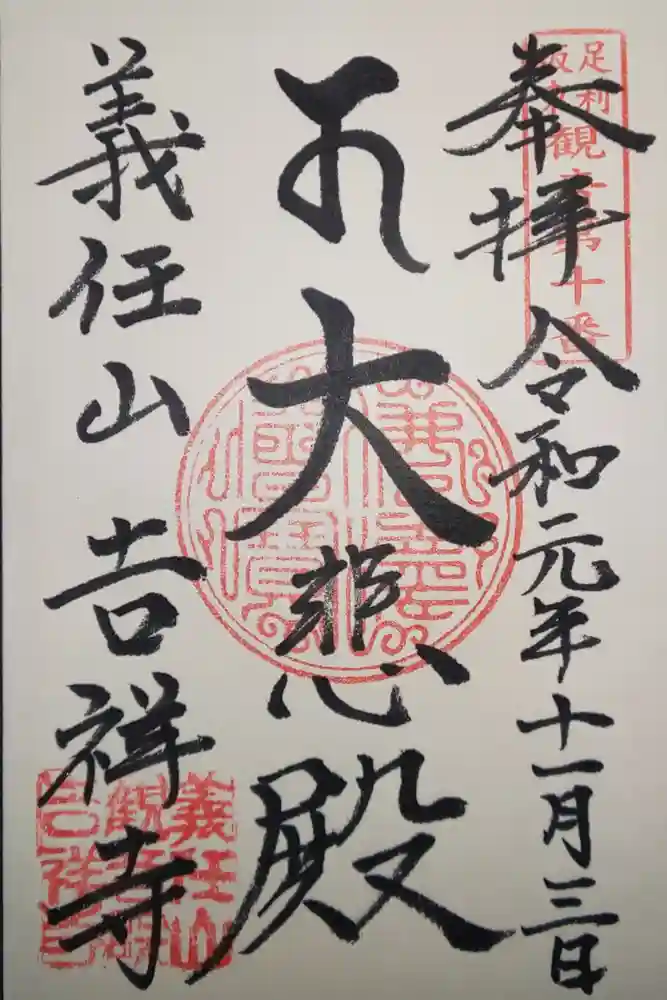 奉拝 令和元年十一月三日
足利
坂東観音第十番
大悲殿
義任山 吉祥寺
義任山
吉祥寺